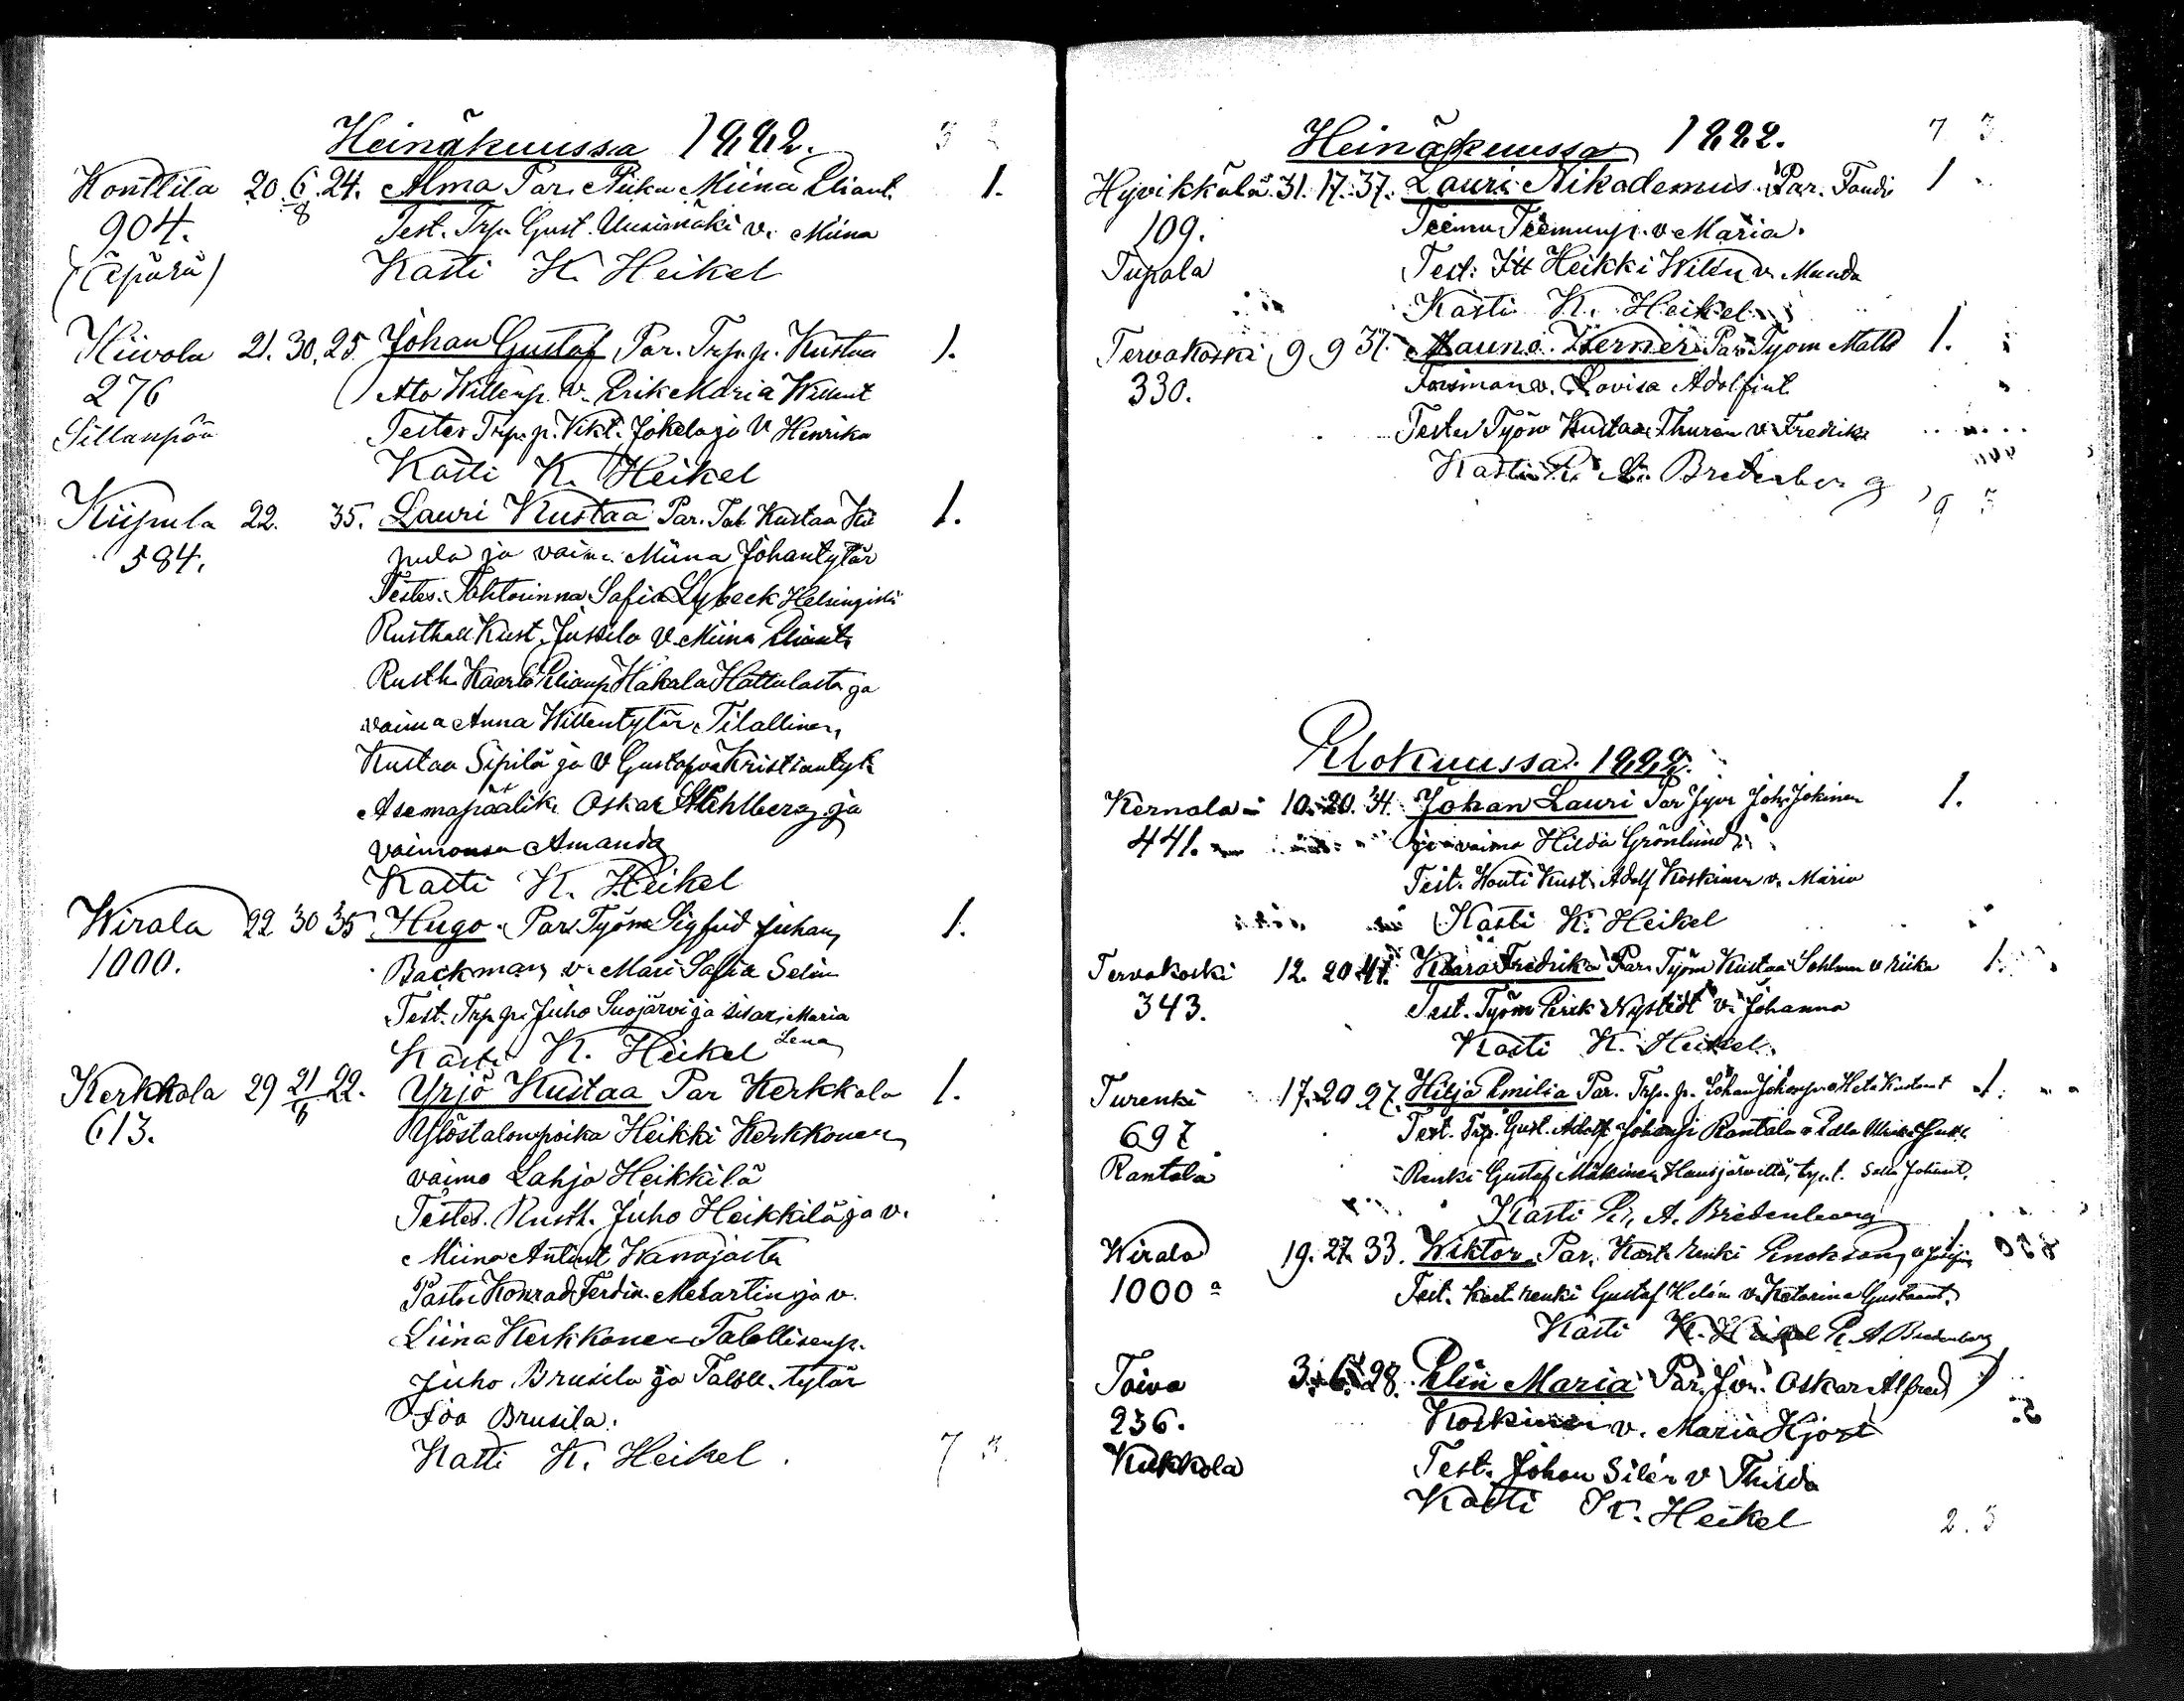 Heinäkuussa 1882.
Konttila 20. 6/8. 24. Alma Par. Piika Miina Eliant. 1.
904. Test. Trp. Gust. Uusimäki v. Miina
(Äpärä) Kasti K. Heikel
Kiivola 21. 30. 25. Johan Gustaf Par. Trp. p. Kustaa 1.
276 Ato Willenp. v. Erik Maria Willent
Sillanpää Testes Trp. p. Vikt. Jokela ja v Henrika
Kasti K. Heikel
Kiipula 22. 35. Lauri Kustaa Par. Tal. Kustaa Kii 1.
584. pula ja vaimo Miina Johantytär
Testes. Tohtorinna Safia Lybeck Helsingistä
Rusthall Kust. Jussila v. Miina Eliant.
Rusth. Kaarlo Elianp. Hakala Hattulasta ja
vaimo Anna Willentytär, Tilallinen,
Kustaa Sipilä ja v Gustafva Kristiantyt.
Asemapäälik. Oskar Ståhlberg ja
vaimonsa Amanda
Kasti K. Heikel
Wirala 22 30 35 Hugo. Par. Työm. Sigfrid Juhanp. 1.
1000. Backman v. Mari Safia Selin
Test. Trp. p. Juho Suojärvi ja sisar, Maria
Lena
Kasti K. Heikel
Kerkkola 29 21/6 22. Yrjö Kustaa Par Kerkkola 1.
613. Ylöstalonpoika Heikki Kerkkonen
vaimo Lahja Heikkilä
Testes. Rusth. Juho Heikkilä ja v.
Miina Antint. Wanajasta
Pastor Konrad Ferdin. Melartin ja v.
Liina Kerkkonen Talollisenp.
Juho Brusila ja Taloll. tytär
Brusila.
Kasti K. Heikel. 7 3
Heinäkuussa 1882. 7 3
Hyvikkälä 31. 17. 37. Lauri Nikodemus Par. Tandi 1
109. Teemu Teemunp. v Maria.
Tupala Test: Itt Heikki Willen v. Manda
Kasti K. Heikel
Tervakoski 9 9 37. Mauno Werner Par Työm Matts 1.
330. Forsman v. Lovisa Adolfint.
Testes Työm Kustaa Thuren v. Fredrika
Kasti P. A. Bredenberg
9 3
Elokuussa 1882.
Kernala 10. 20. 34. Johan Lauri Par Joh. Jokinen 1.
441. ja vaimo Hilda Grönlund
Test. Wouti Kust. Adolf Koskinen v. Maria
Kasti K. Heikel
Tervakoski 12. 20 41. Klara Fredrika Par. Työm Kustaa Sahlman v Riika 1.
343. Test. Työm Erik Nystedt v. Johanna
Kasti K. Heikel.
Turenki 17. 20 27. Hilja Emilia Par. Trp. p. Johan Johanp. v Heta Kustaant 1.
697 Test. Trp. Gust. Adolf Johanp. Rantala v Edla
Rantala Renki Gustaf Mäkinen Hausjärveltä, Johant.
Kasti P. A. Bredenberg
Wirala 19. 27. 33. Wiktor. Par. Kart. renki Enoksson v 1
1000 a Test. Kart. renki Gustaf Helén v. Katarina Gustaant.
Kasti K. Heikel P. A. Bredenberg
Toivo 3. 6. 28. Elin Maria Par. Oskar Alfred 1
236. Koskinen v. Maria Hjort
Kukkola Test. Johan Silén v Thilda
Kasti K. Heikel
2. 3